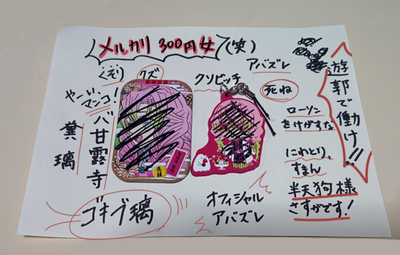 メルカリ300円女(笑)
クズ
クソビッチ
アバズレ
死ね
遊郭で働け!!
甘露寺
ローソン
をけがすな
にわとり、
すまん
半天狗様
さすがです!
ゴキブ璃
オフィシャル
アバズレ